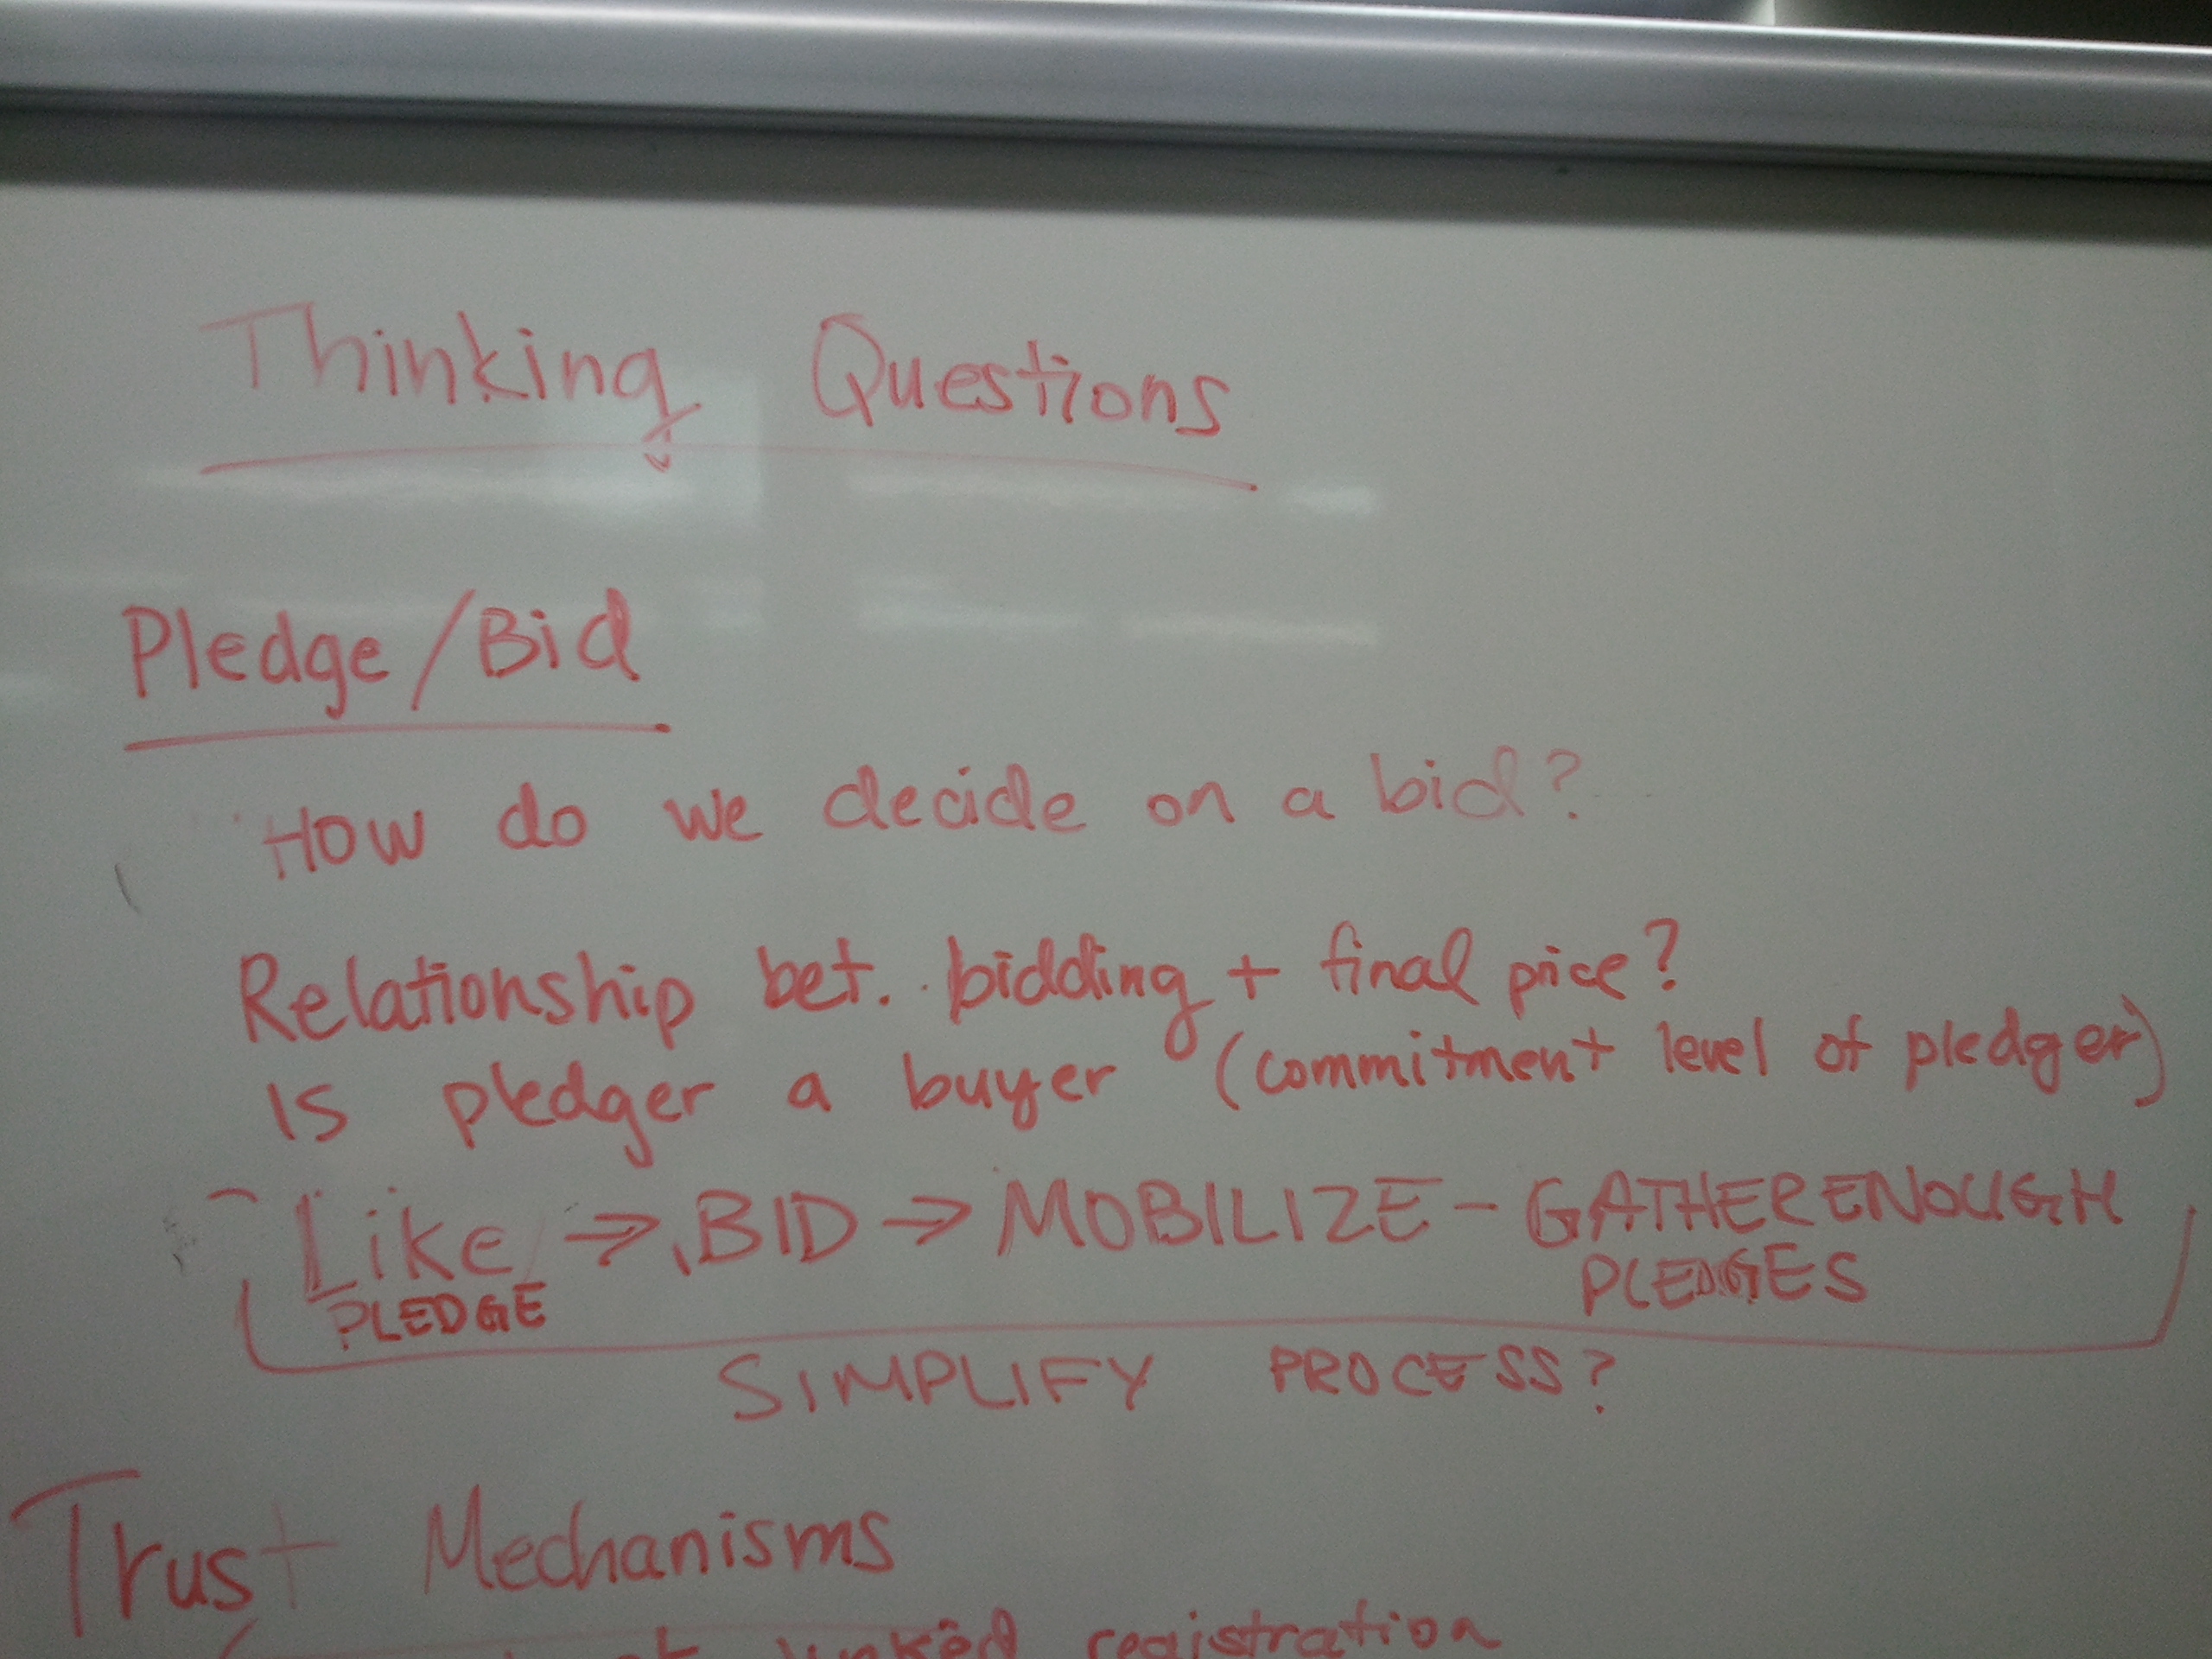 Thinking Questions
Pledge/Bid
How do we decide on a bid?
Relationship bet. bidding + final price?
is pledger a buyer (commitment level of pledger)
Like → BID → MOBILIZE - GATHER ENOUGH
PLEDGES
PLEDGE
SIMPLIFY PROCESS?
Trust Mechanisms
linked registration